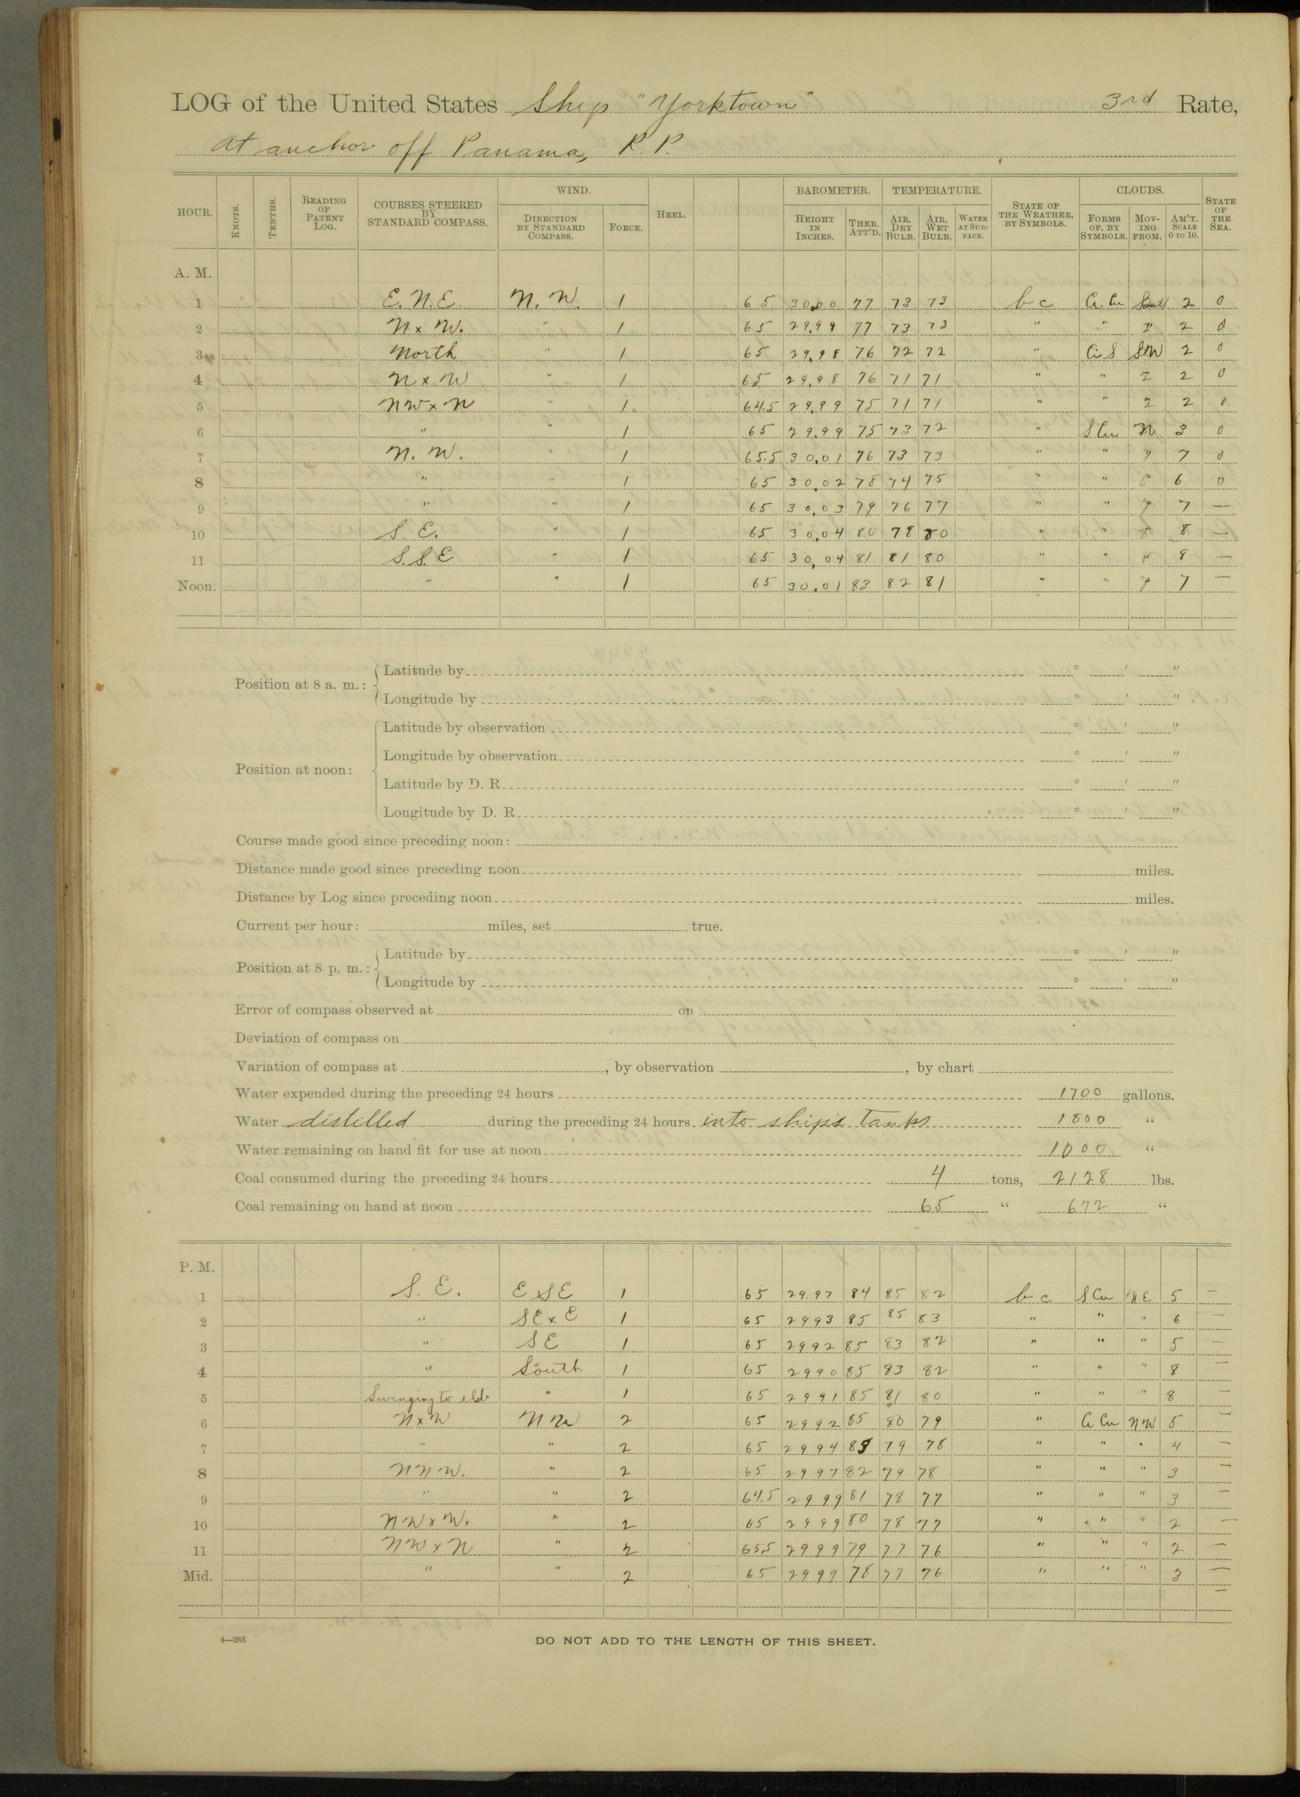 LOG of the United States Ship "Yorktown" 3rd Rate,
At anchor off Panama, R. P.
HOUR. KNOTS. TENTHS. READING OF PATENT LOG. COURSES STEERED BY STANDARD COMPASS. WIND. DIRECTION BY STANDARD COMPASS. FORCE. HEEL. BAROMETER. HEIGHT IN INCHES. THER. ATT'D. TEMPERATURE. AIR, DRY BULB. AIR, WET BULB. WATER AT SURFACE. STATE OF THE WEATHER, BY SYMBOLS. CLOUDS. FORMS OF, BY SYMBOLS. MOVING FROM. AM'T. SCALE 0 TO 10. STATE OF THE SEA.
A. M.
1 E.N.E. N. W. 1 65 30.00 77 73 73 b c Ci. Cu 2 0
2 N x W. " 1 65 29.99 77 73 73 " " " 2 0
3 North " 1 65 29.98 76 72 72 " Ci S SW 2 0
4 N x W " 1 65 29.98 76 71 71 " " 2 0
5 NW x N " 1 64.5 29.99 75 71 71 " " 2 0
6 " " 1 65 29.99 75 73 72 " S Cu N 3 0
7 N. W. " 1 65.5 30.01 76 73 73 " " " 7 0
8 " " 1 65 30.02 78 74 75 " " " 6 0
9 " " 1 65 30.03 79 76 77 " " " 7 —
10 S. E. " 1 65 30.04 80 78 80 " " " 8 —
11 S.S.E " 1 65 30.04 81 81 80 " " " 8 —
Noon. " " 1 65 30.01 83 82 81 " " " 7 —
Position at 8 a. m.: Latitude by ° ' "
Longitude by ° ' "
Position at noon: Latitude by observation ° ' "
Longitude by observation ° ' "
Latitude by D. R. ° ' "
Longitude by D. R. ° ' "
Course made good since preceding noon:
Distance made good since preceding noon miles.
Distance by Log since preceding noon miles.
Current per hour: miles, set true.
Position at 8 p. m.: Latitude by ° ' "
Longitude by ° ' "
Error of compass observed at on
Deviation of compass on
Variation of compass at , by observation , by chart
Water expended during the preceding 24 hours 1700 gallons.
Water distilled during the preceding 24 hours into ship's tanks 1800 "
Water remaining on hand fit for use at noon 1000 "
Coal consumed during the preceding 24 hours 4 tons, 2128 lbs.
Coal remaining on hand at noon 65 " 672 "
P. M.
1 S. E. E x SE 1 65 29.97 84 85 82 b c S Cu NE 5 —
2 " SE x E 1 65 2993 85 85 83 " " " 6 —
3 " SE 1 65 2992 85 83 82 " " " 5 —
4 " South 1 65 2990 85 83 82 " " " 8 —
5 Swinging to ebb " 1 65 2991 85 81 80 " " " 8 —
6 N x W NW 2 65 2992 85 80 79 " Ci Cu NW 5 —
7 " " 2 65 2994 83 79 78 " " " 4 —
8 NNW. " 2 65 2997 82 79 78 " " " 3 —
9 " " 2 64.5 2999 81 78 77 " " " 3 —
10 NW x W. " 2 65 2999 80 78 77 " " " 2 —
11 NW x N " 2 65.5 2999 79 77 76 " " " 2 —
Mid. " " 2 65 2999 78 77 76 " " " 3 —
4—265
DO NOT ADD TO THE LENGTH OF THIS SHEET.